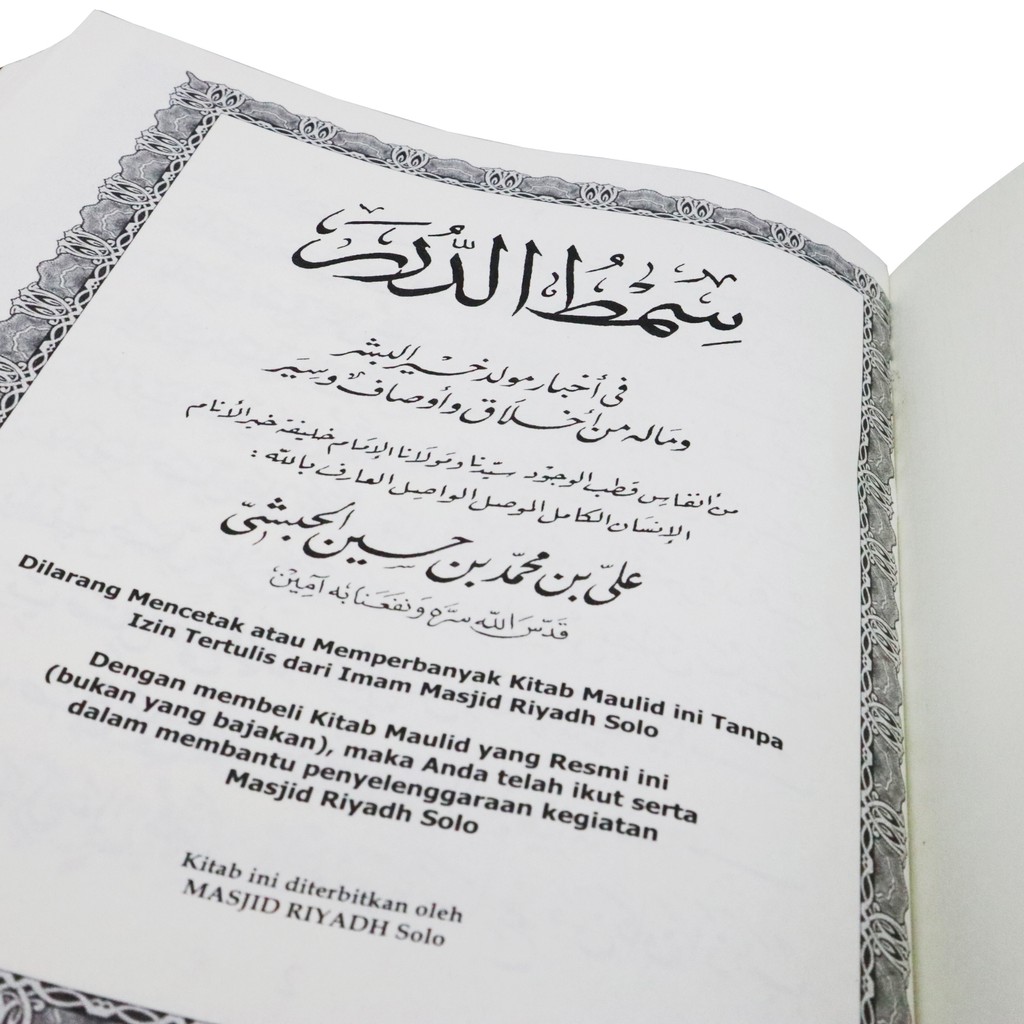 سِمْطُ الدُّرَر
في أخبار مولد خير البشر
وماله من أخلاق وأوصاف وسير
من أنفاس قطب الوجود سيّدنا ومولانا الإمام خليفة خير الأنام
الإنسان الكامل الموصل الواصل العارف بالله :
عليّ بن محمّد بن حسين الحبشيّ
قدّس الله سرّه ونفعنا به آمين
Dilarang Mencetak atau Memperbanyak Kitab Maulid ini Tanpa
Izin Tertulis dari Imam Masjid Riyadh Solo
Dengan membeli Kitab Maulid yang Resmi ini
(bukan yang bajakan), maka Anda telah ikut serta
dalam membantu penyelenggaraan kegiatan
Masjid Riyadh Solo
Kitab ini diterbitkan oleh
MASJID RIYADH Solo